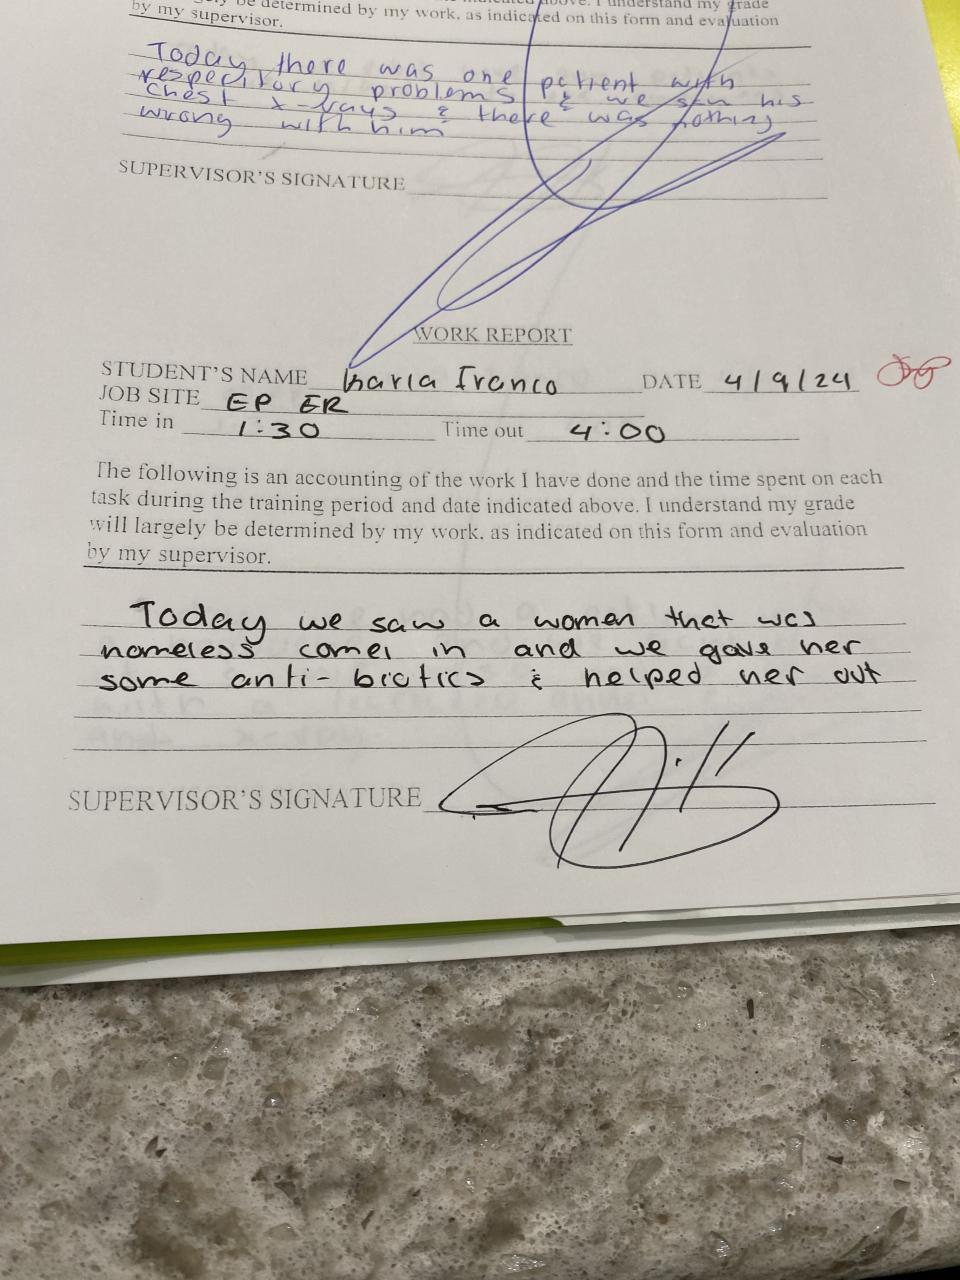 be determined by my work, as indicated on this form and evaluation
by my supervisor.
Today there was one patient with
respecitory problems & we saw his
chest x-rays & there was nothing
wrong with him
SUPERVISOR'S SIGNATURE
WORK REPORT
STUDENT'S NAME Karla Franco DATE 4/9/24
JOB SITE EP ER
Time in 1:30 Time out 4:00
The following is an accounting of the work I have done and the time spent on each
task during the training period and date indicated above. I understand my grade
will largely be determined by my work, as indicated on this form and evaluation
by my supervisor.
Today we saw a women that was
homeless come in and we gave her
some anti-biotics & helped her out
SUPERVISOR'S SIGNATURE